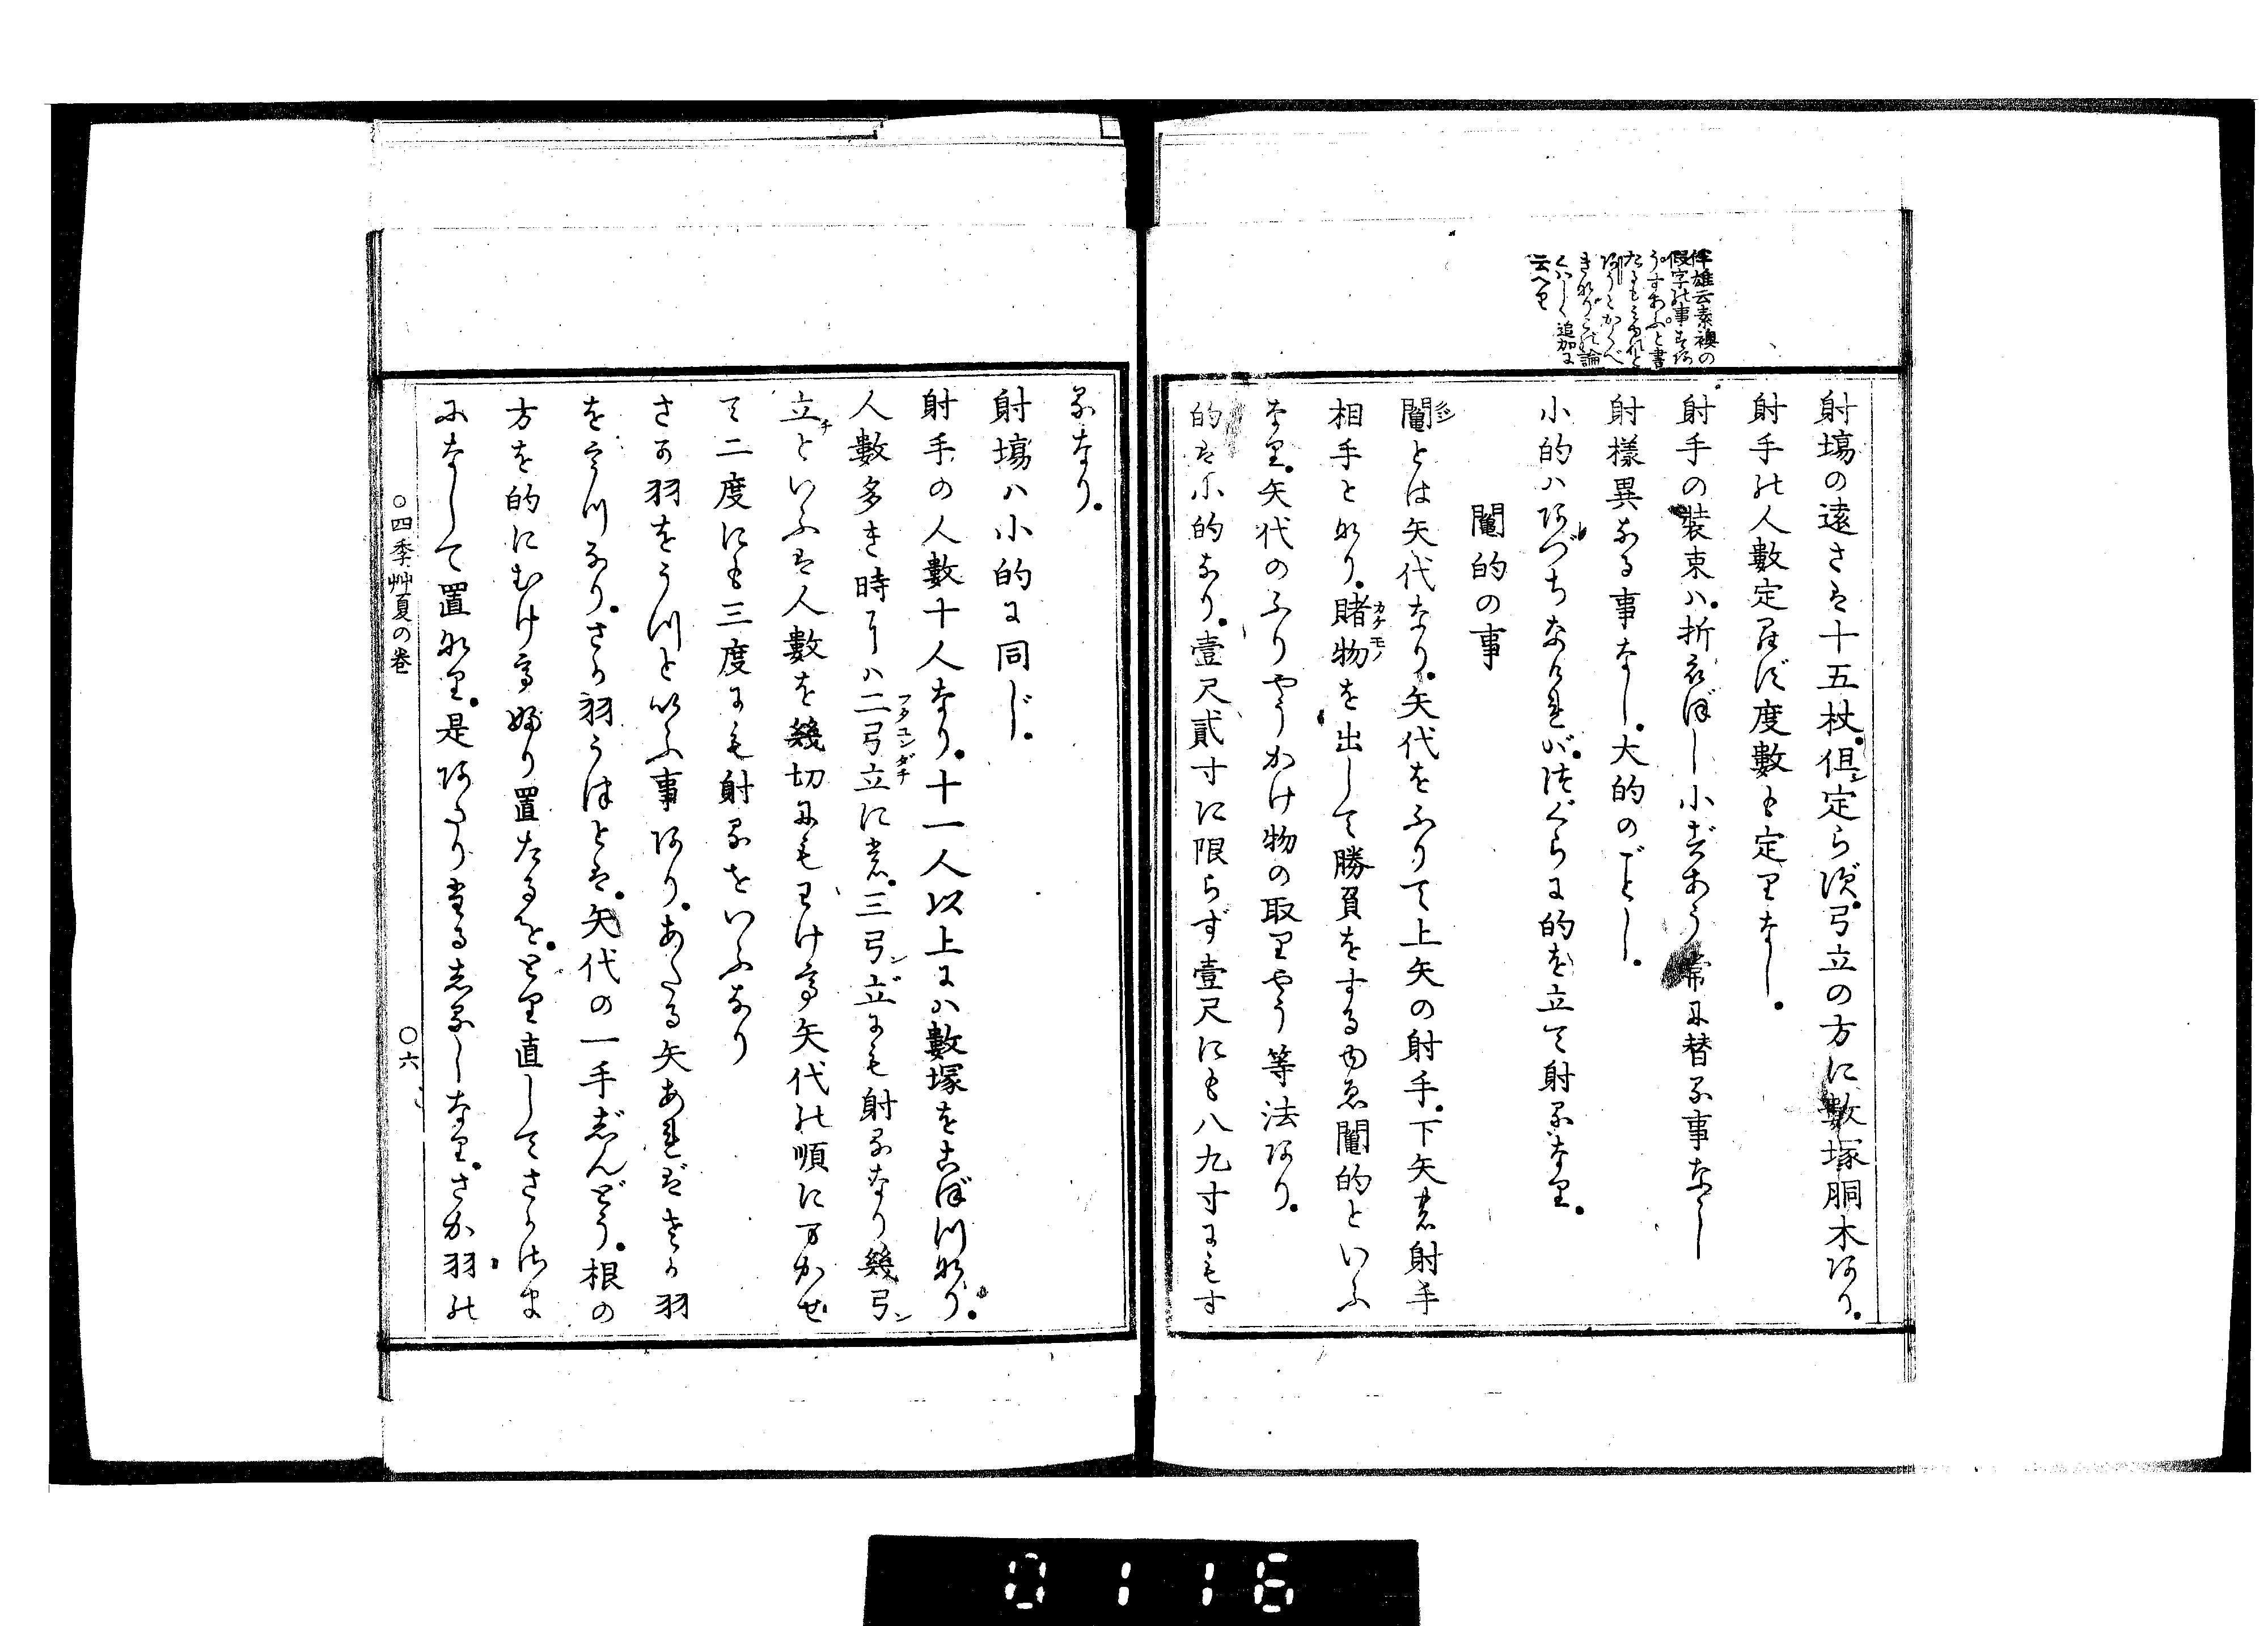 隼雄云素襖の
假字の事すあ
うすあふと書
たるもみゆれと
あうとかくべ
き也かの論
くはしく追加に
云へり
射塲の遠さは十五杖。但定らず。弓立の方に數塚胴木あり。
射手の人數定らず度數も定りなし。
射手の裝束ハ。折ゑぼし小すあう常に替る事なし
射樣異なる事なし。大的のごとし。
小的ハあづちなければ。まぐらに的を立て射るなり。
鬮的の事
鬮とは矢代なり。矢代をふりて上矢の射手。下矢の射手
相手となり。賭物を出して勝負をするゆゑ鬮的といふ
なり。矢代のふりやうかけ物の取りやう等法あり。
的は小的なり。壹尺貳寸に限らず壹尺にも八九寸にもす
るなり。
射塲ハ小的に同じ。
射手の人數十人なり。十一人以上にハ數塚をこぼつなり。
人數多き時ハ二弓立にも。三弓立にも射るなり幾弓
立といふは人數を幾切にもわけて矢代の順にまかせ
て二度にも三度にも射るをいふなり
さか羽をうつといふ事あり。あたる矢あればさか羽
をうつなり。さか羽うつとは。矢代の一手じんどう。根の
方を的にむけてふり置たるを。とり直してさかさま
になして置なり。是あたり當るしるしなり。さか羽の
○四季艸夏の卷
○六
0116